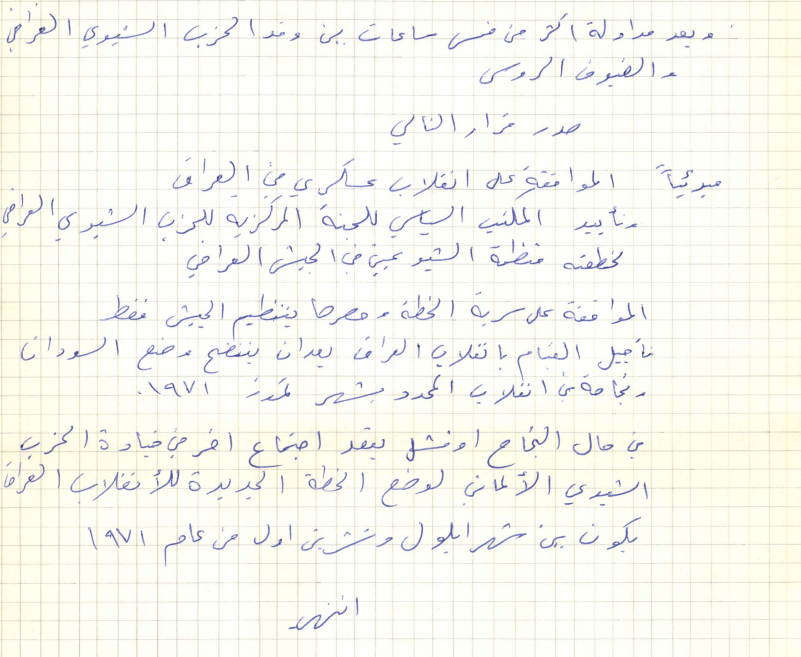 وبعد مداولة اكثر من خمس ساعات بين وفد الحزب الشيوي العراقي
والضيوف الروس
صدر قرار التالي
مبدئياً الموافقة على انقلاب عسكري في العراق
وتأييد المكتب السياسي للجنة المركزيه للحزب الشيوي العراقي
لخطفته منظمة الشيوعيين في الجيش العراقي
الموافقة على سرية الخطة وحصرها بتنظيم الجيش فقط
تأجيل القيام بانقلاب العراق بعد ان يتضح وضع السودان
ونجاحة في انقلاب المحدد بشهر تموز ١٩٧١.
في حال النجاح او فشل يعقد اجتماع اخر في قيادة الحزب
الشيوي الألماني لوضع الخطة الجديدة للأنقلاب العراق
يكون بين شهر ايلول وتشرين اول من عام ١٩٧١
انتهى